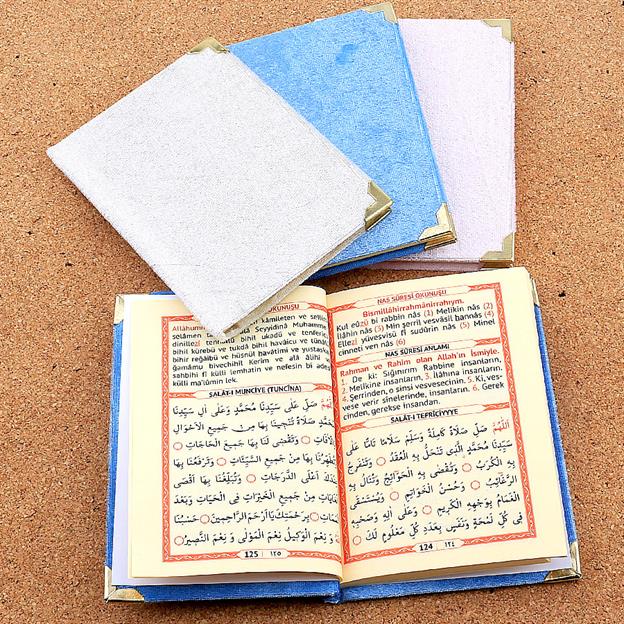 NAS SÛRESİ OKUNUŞU
Bismillâhirrahmânirrahıym.
Kul eûzü bi rabbin nâs (2) Melikin nâs (2)
ilâhin nâs (3) Min şerril vesvâsil hannâs (4)
Ellezî yüvesvisü fî sudûrin nâs (5) Minel
cinneti ven nâs (6)
NAS SÛRESİ ANLAMI
Rahman ve Rahim olan Allah'ın ismiyle.
1. De ki: Sığınırım Rabbine insanların,
2. Melikine insanların, 3. İlâhına insanların.
4. Şerrinden, o sinsi vesvesecinin. 5. Ki, ves-
vese verir sinelerinde, insanların. 6. Gerek
cinden, gerekse insandan.
SALÂT-I TEFRİCİYYE
اَللّٰهُمَّ صَلِّ صَلَاةً كَامِلَةً وَسَلِّمْ سَلَامًا تَامًّا عَلٰى
سَيِّدِنَا مُحَمَّدٍ الَّذِي تَنْحَلُّ بِهِ الْعُقَدُ وَتَنْفَرِجُ
بِهِ الْكُرَبُ وَتُقْضٰى بِهِ الْحَوَائِجُ وَتُنَالُ بِهِ
الرَّغَائِبُ وَحُسْنُ الْخَوَاتِمِ وَيُسْتَسْقَى
الْغَمَامُ بِوَجْهِهِ الْكَرِيمِ وَعَلٰى اٰلِهِ وَصَحْبِهِ
فِي كُلِّ لَمْحَةٍ وَنَفَسٍ بِعَدَدِ كُلِّ مَعْلُومٍ لَكَ
124 ١٢٤
OKUNUŞU
Allâhümme kâmileten ve sellim
selâmen Seyyidinâ Muhamme-
dinillezî tenhallü bihil ukadü ve tenfericü
bihil kürebü ve tukdâ bihil havâicu ve tünâlü
bihir reğâibü ve hüsnül havâtimi ve yusteskal
ğamâmu bivechihil Kerîm ve alâ âlihî ve
sahbihî fî külli lemhatin ve nefesin bi adedi
külli ma'lûmin lek.
SALÂT-I MÜNCİYE (TUNCİNA)
صَلِّ عَلٰى سَيِّدِنَا مُحَمَّدٍ وَعَلٰى اٰلِ سَيِّدِنَا
مُحَمَّدٍ صَلَاةً تُنْجِينَا بِهَا مِنْ جَمِيعِ الْاَهْوَالِ
وَالْاٰفَاتِ وَتَقْضِي لَنَا بِهَا جَمِيعَ الْحَاجَاتِ
وَتُطَهِّرُنَا بِهَا مِنْ جَمِيعِ السَّيِّئَاتِ وَتَرْفَعُنَا بِهَا
عِنْدَكَ اَعْلَى الدَّرَجَاتِ وَتُبَلِّغُنَا بِهَا اَقْصَى
الْغَايَاتِ مِنْ جَمِيعِ الْخَيْرَاتِ فِي الْحَيَاتِ وَبَعْدَ
الْمَمَاتِ بِرَحْمَتِكَ يَا اَرْحَمَ الرَّاحِمِينَ حَسْبُنَا
وَنِعْمَ الْوَكِيلُ نِعْمَ الْمَوْلٰى وَنِعْمَ النَّصِيرُ
125 ١٢٥